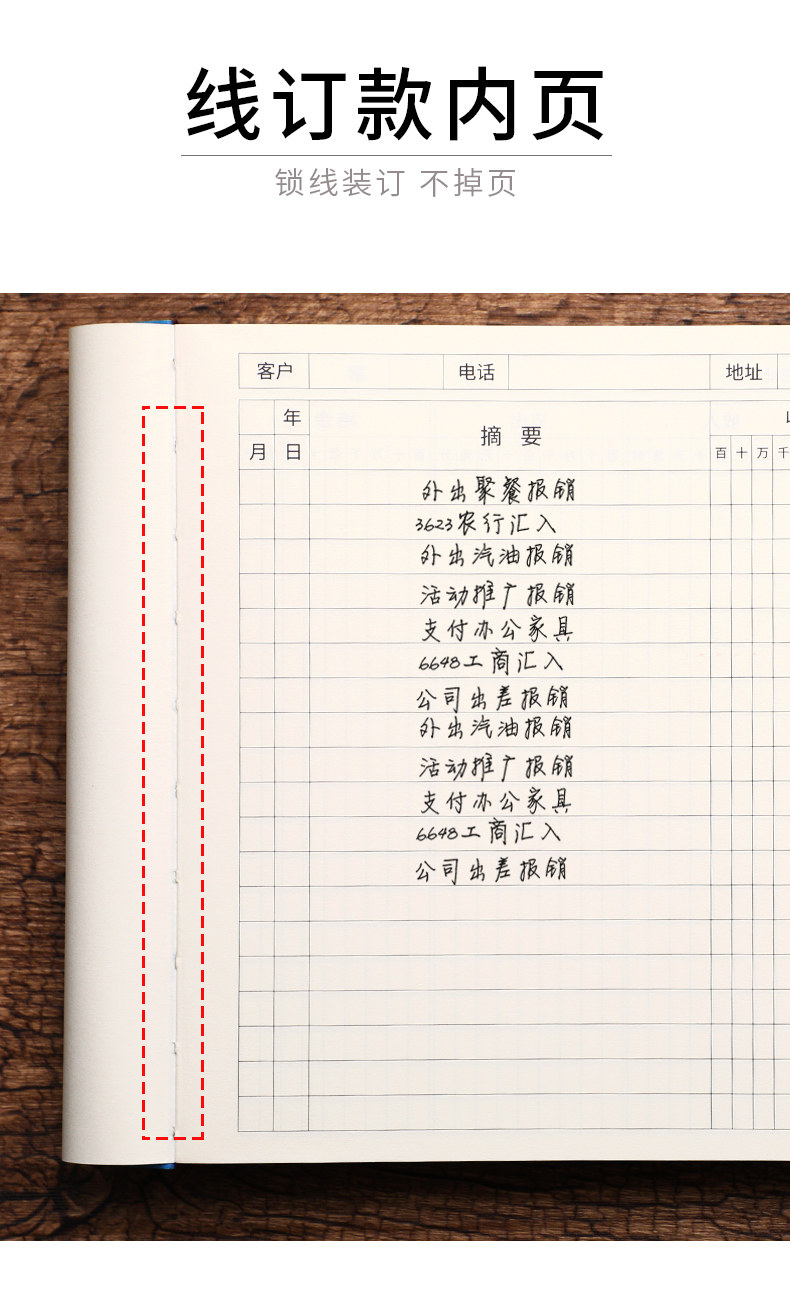 线订款内页
锁线装订 不掉页
客户 电话 地址
年
摘要
月 日 百 十 万 千
外出聚餐报销
3623农行汇入
外出汽油报销
活动推广报销
支付办公家具
6648工商汇入
公司出差报销
外出汽油报销
活动推广报销
支付办公家具
6648工商汇入
公司出差报销